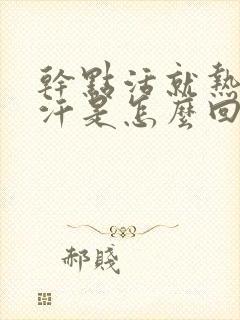 幹點活就熱
汗是怎麼回
郝賤